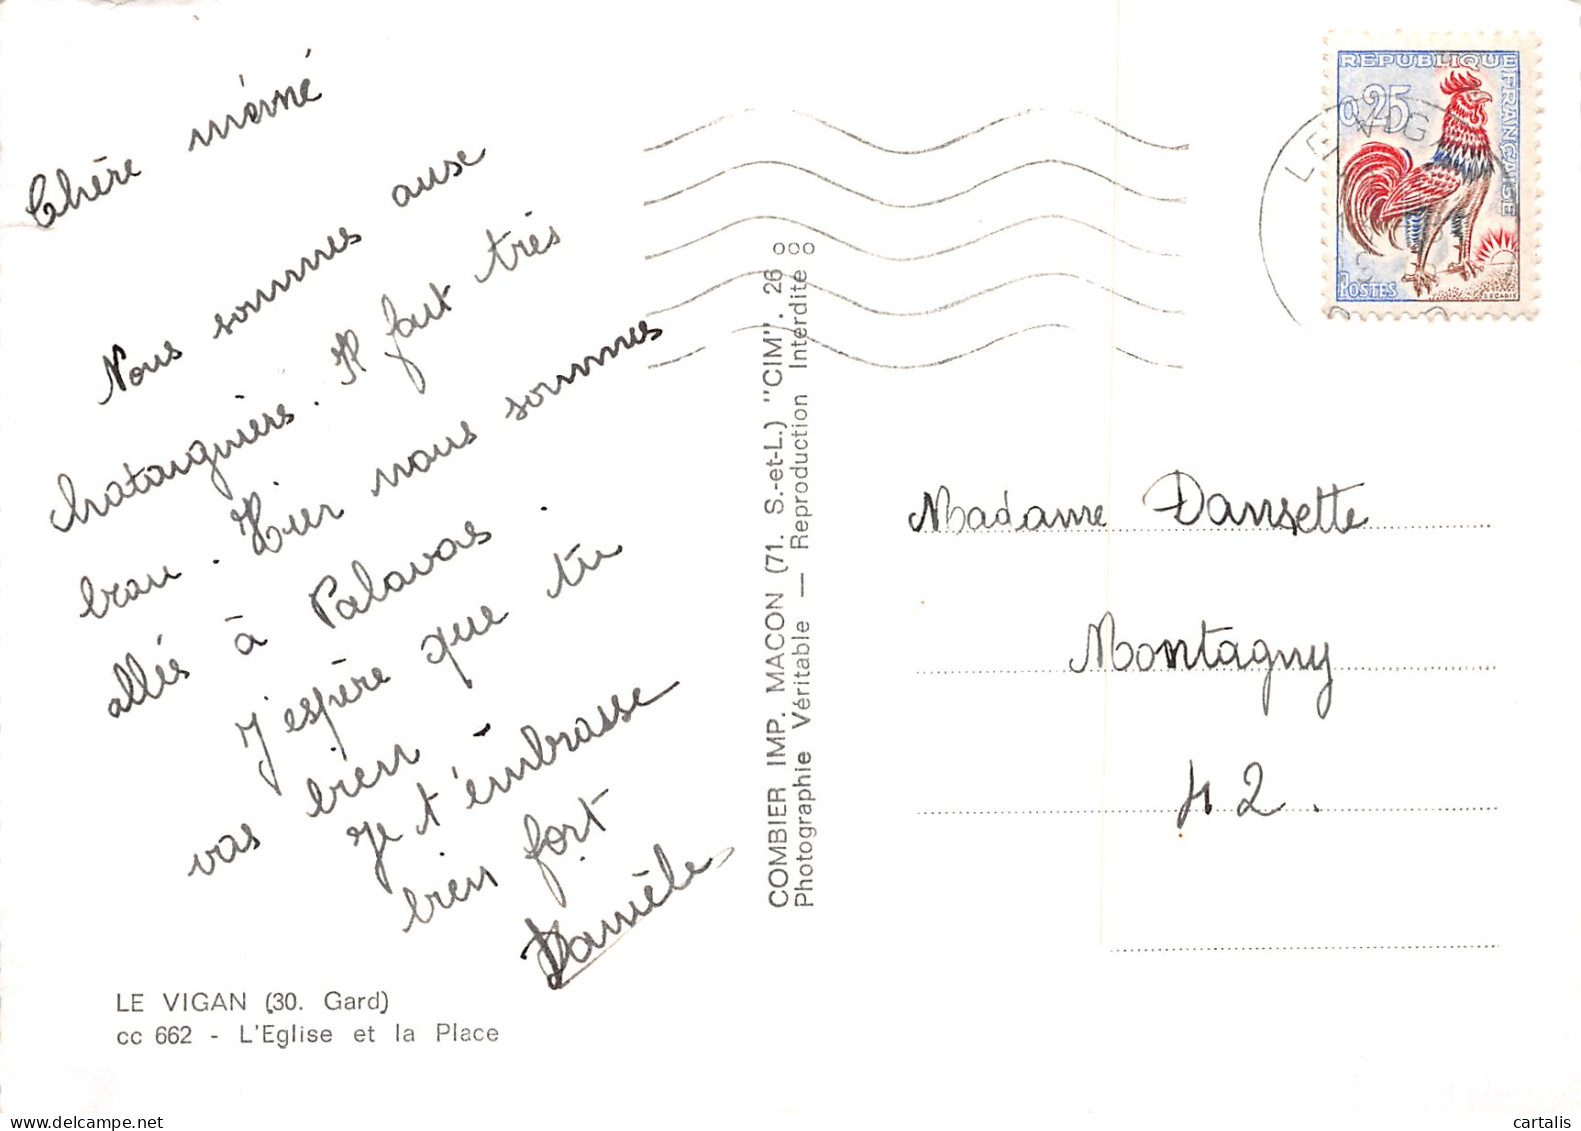 Chère mémé
Nous sommes ause
chataigniers. Il fait très
beau. Hier nous sommes
allés à Palavas.
J'espère que tu
vas bien.
Je t'embrasse
bien fort
Danièle
LE VIGAN (30. Gard)
cc 662 - L'Eglise et la Place
COMBIER IMP. MACON (71. S.-et-L.) "CIM". 26
Photographie Véritable — Reproduction Interdite
REPUBLIQUE FRANÇAISE
0,25
POSTES
DECARIS
LE VIG
Madame Dansette
Montagny
42.
cartalis